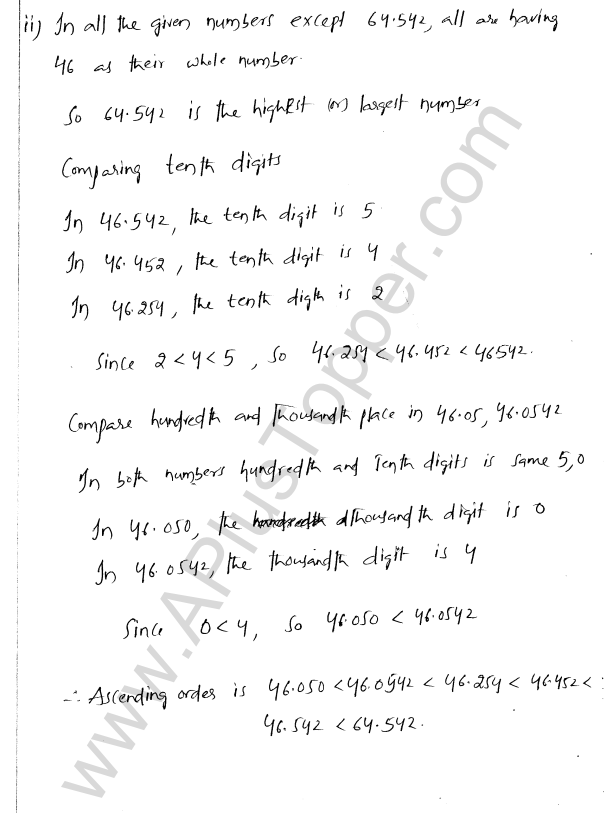 ii) In all the given numbers except 64.542, all are having
46 as their whole number.
So 64.542 is the highest (or) largest number
Comparing tenth digits
In 46.542, the tenth digit is 5
In 46.452, the tenth digit is 4
In 46.254, the tenth digth is 2
Since 2 < 4 < 5, So 46.254 < 46.452 < 46542.
Compare hundredth and Thousandth place in 46.05, 46.0542
In both numbers hundredth and Tenth digits is same 5,0
In 46.050, the thousandth digit is 0
In 46.0542, the thousandth digit is 4
Since 0 < 4, So 46.050 < 46.0542
∴ Ascending order is 46.050 < 46.0542 < 46.254 < 46.452 <
46.542 < 64.542.
www.APlusTopper.com